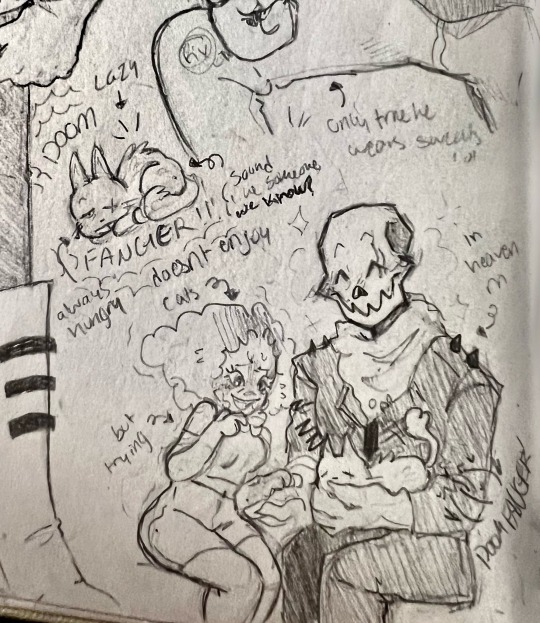 Lazy
DOOM
FANGER!!!
sound
like someone
we know?
only time he
wears sweats
doesnt enjoy
cats
always
hungry
in
heaven
but
trying
DOOM FANGER